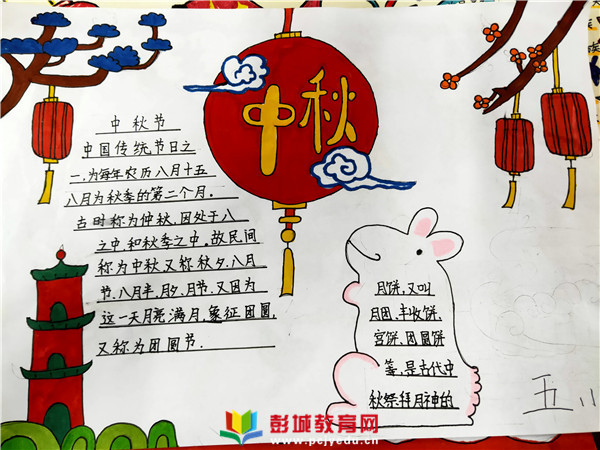 中秋
中秋节
中国传统节日之
一.为每年农历八月十五
八月为秋季的第二个月.
古时称为仲秋,因处于八
之中,和秋季之中,故民间
称为中秋,又称秋夕,八月
节.八月半,月夕,月节.又因为
这一天月亮满月,象征团圆,
又称为团圆节.
月饼,又叫
月团、丰收饼、
宫饼、团圆饼
等,是古代中
秋祭拜月神的
五
彭城教育网
www.pcjyedu.cn